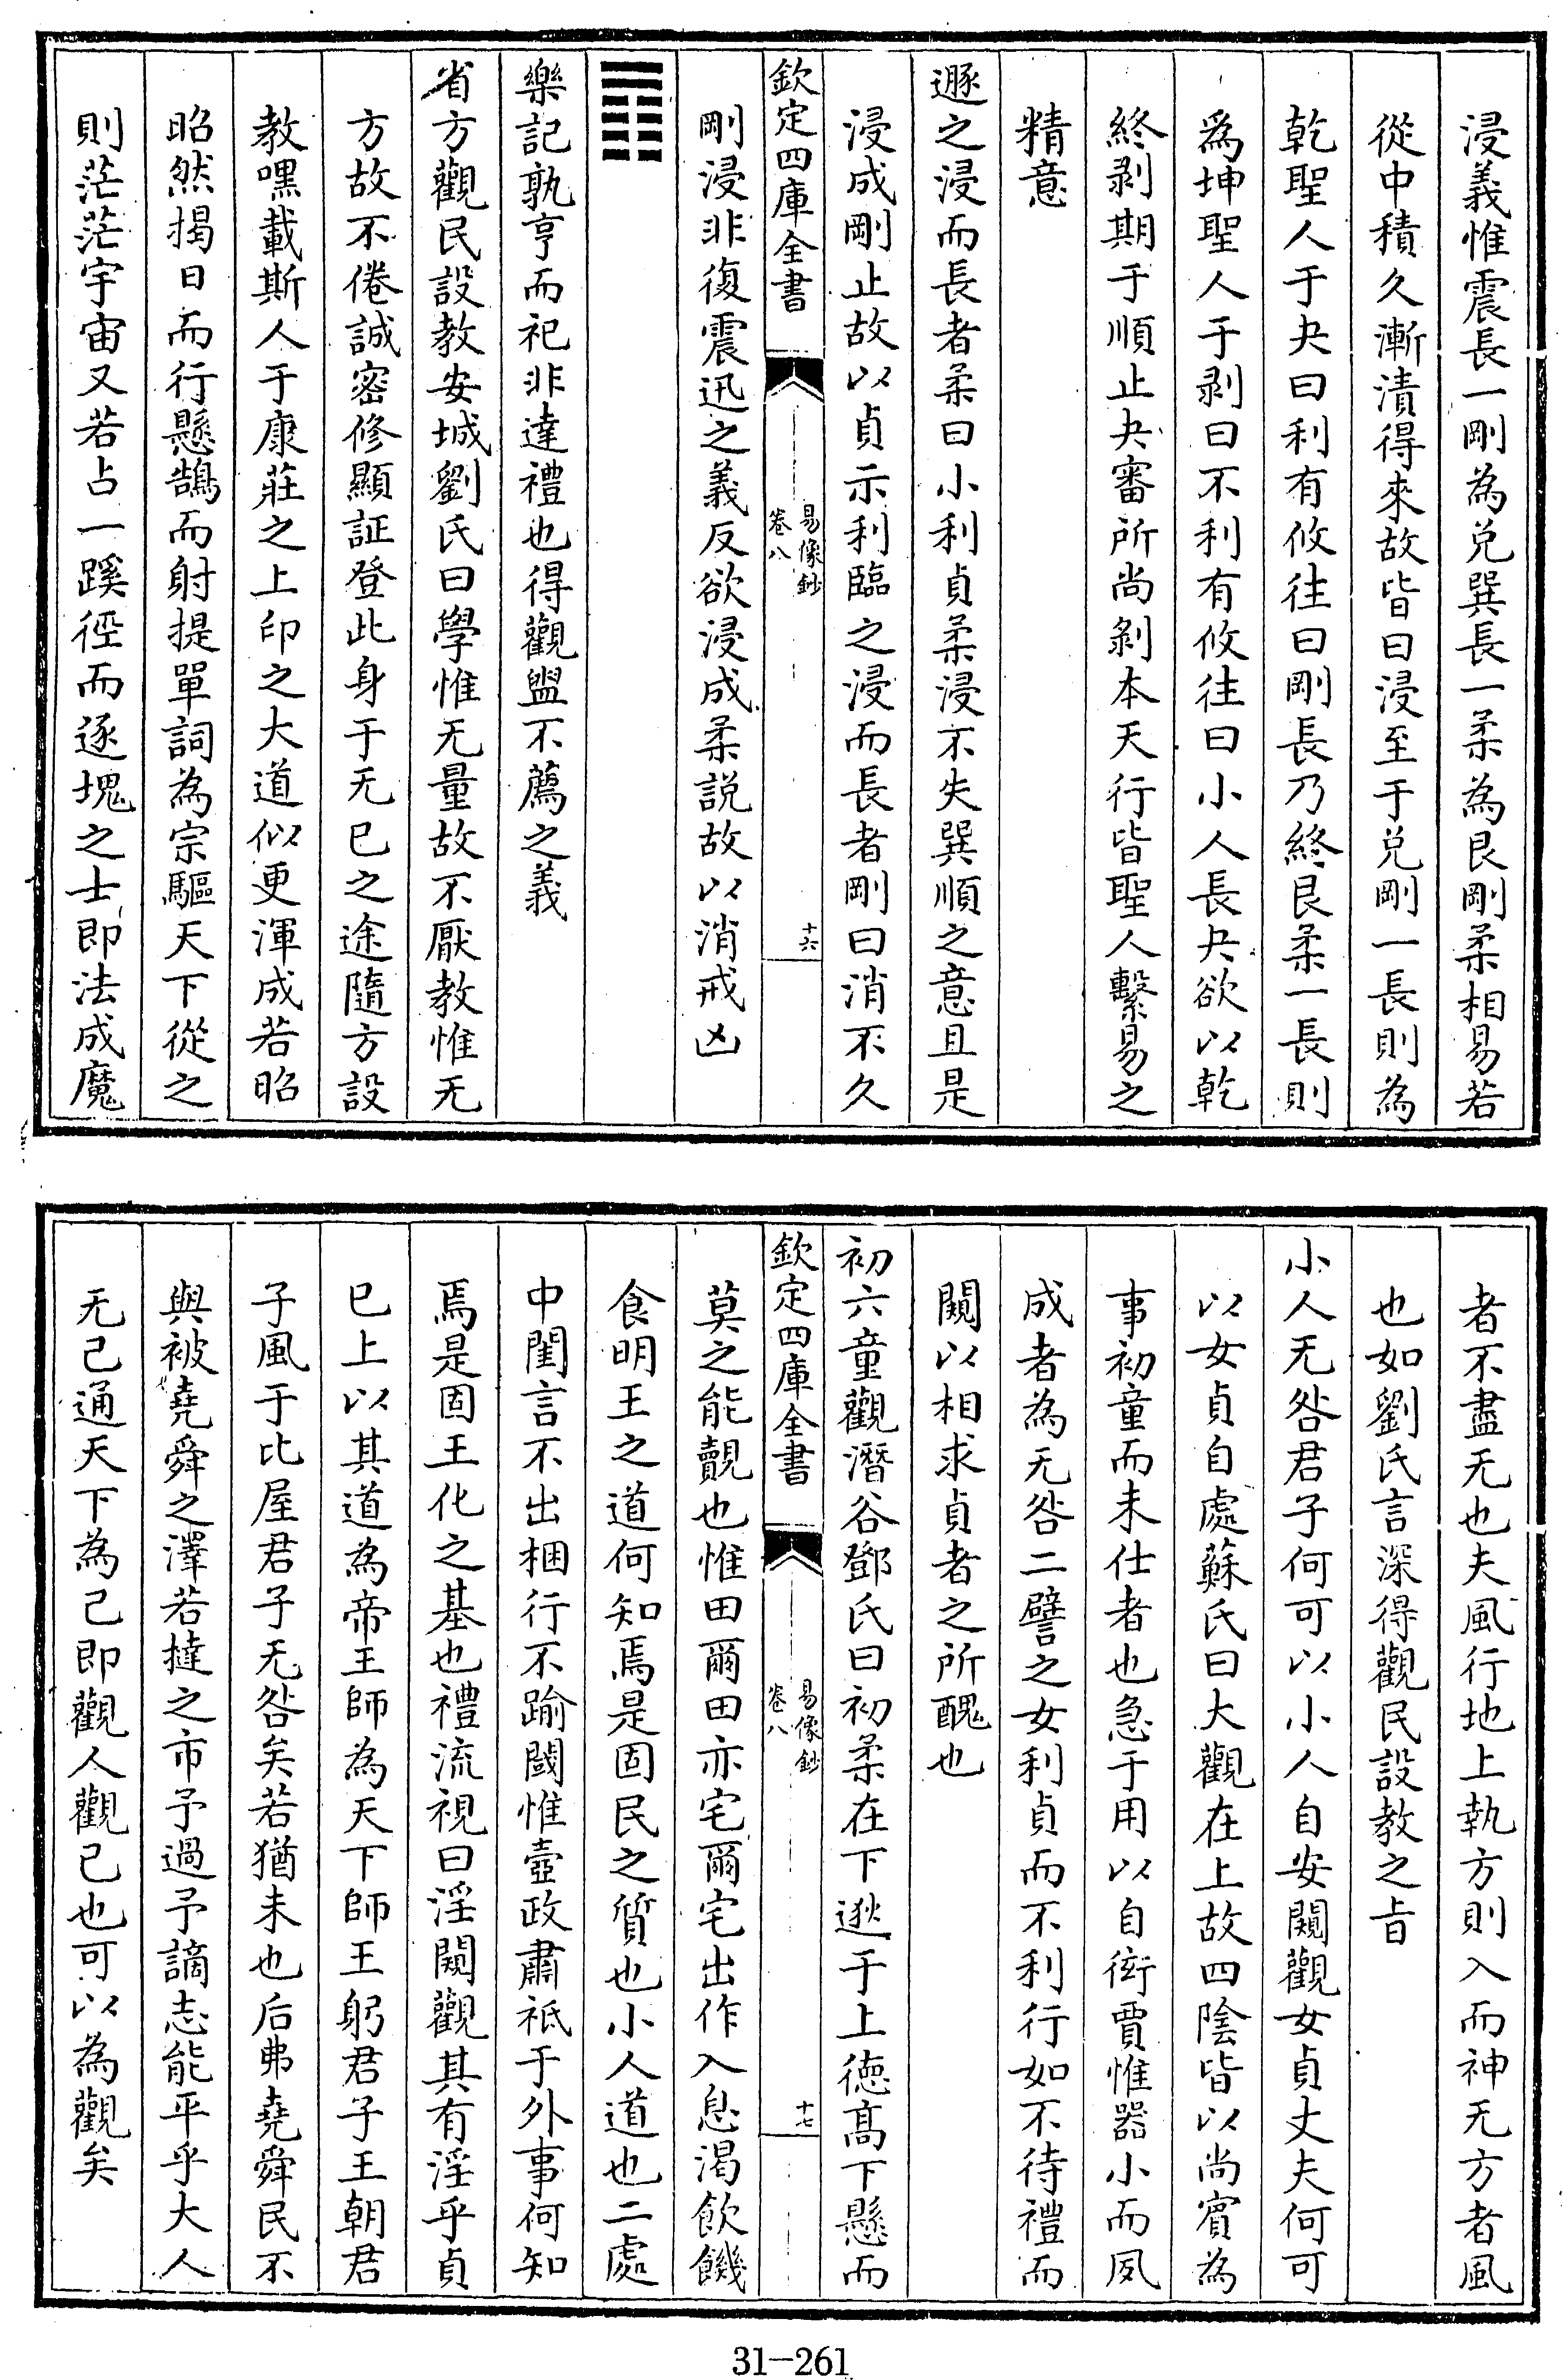 浸義惟震長一剛為兌巽長一柔為艮剛柔相易若
從中積久漸漬得來故皆曰浸至于兌剛一長則為
乾聖人于夬曰利有攸往曰剛長乃終艮柔一長則
為坤聖人于剥曰不利有攸往曰小人長夬欲以乾
終剥期于順止夬審所尚剥本天行皆聖人繫易之
精意
遯之浸而長者柔曰小利貞柔浸不失巽順之意且是
浸成剛止故以貞示利臨之浸而長者剛曰消不久
欽定四庫全書
易像鈔
卷八
十六
剛浸非復震迅之義反欲浸成柔説故以消戒凶
䷓
樂記孰亨而祀非達禮也得觀盥不薦之義
省方觀民設教安城劉氏曰學惟无量故不厭教惟无
方故不倦誠密修顯証登此身于无已之途隨方設
教嘿載斯人于康莊之上印之大道似更渾成若昭
昭然揭日而行懸鵠而射提單詞為宗驅天下從之
則茫茫宇宙又若占一蹊徑而逐塊之士即法成魔
者不盡无也夫風行地上執方則入而神无方者風
也如劉氏言深得觀民設教之旨
小人无咎君子何可以小人自安闚觀女貞丈夫何可
以女貞自處蘇氏曰大觀在上故四陰皆以尚賓為
事初童而未仕者也急于用以自衒賈惟器小而夙
成者為无咎二譬之女利貞而不利行如不待禮而
闚以相求貞者之所醜也
初六童觀潛谷鄧氏曰初柔在下逖于上德髙下懸而
欽定四庫全書
易像鈔
卷八
十七
莫之能覿也惟田爾田亦宅爾宅出作入息渇飲饑
食明王之道何知焉是固民之質也小人道也二處
中閨言不出梱行不踰閾惟壼政肅祗于外事何知
焉是固王化之基也禮流視曰淫闚觀其有淫乎貞
已上以其道為帝王師為天下師王躬君子王朝君
子風于比屋君子无咎矣若猶未也后弗堯舜民不
與被堯舜之澤若撻之市予過予謫志能平乎大人
无己通天下為己即觀人觀己也可以為觀矣
31-261